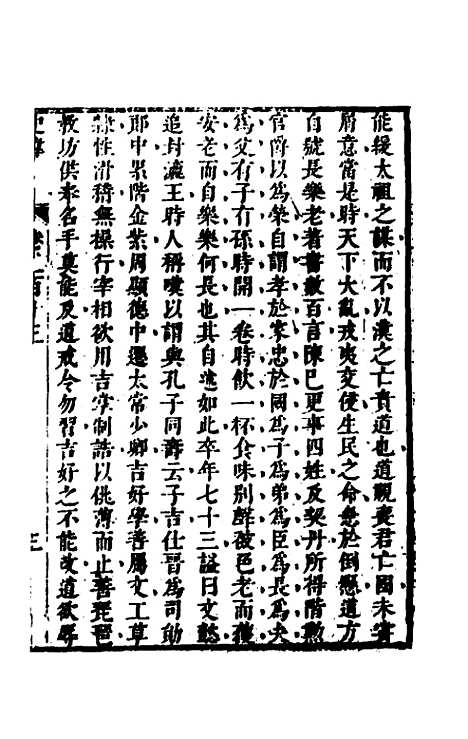 能緩太祖之謀而不以漢之亡責道也道視喪君亡國未嘗
屑意當是時天下大亂戎夷交侵生民之命急於倒懸道方
自號長樂老著書數百言陳已更事四姓及契丹所得階勳
官爵以爲榮自謂孝於家忠於國爲子爲弟爲臣爲長爲夫
爲父有子有孫時開一卷時飲一杯食味別聲被色老而復
安老而自樂樂何長也其自述如此卒年七十三謚曰文懿
追封瀛王時人稱嘆以謂與孔子同壽云子吉仕晉爲司勛
郎中累階金紫周顯德中遷太常少卿吉好學善屬文工草
隸性滑稽無操行宰相欲用吉掌制誥以佻薄而止善琵琶
教坊供奉名手莫能及道戒令勿習吉好之不能改道欲辱